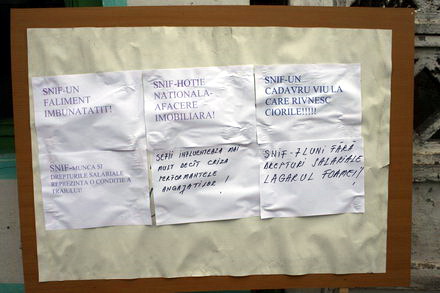 SNIF-UN
FALIMENT
IMBUNATATIT!
SNIF-HOȚIE
NATIONALA-
AFACERE
IMOBILIARA!
SNIF-UN
CADAVRU VIU LA
CARE RIVNESC
CIORILE!!!!!
SNIF-MUNCA SI
DREPTURILE SALARIALE
REPREZINTA O CONDITIE A
TRAIULUI!
ȘEFII INFLUENȚEAZĂ MAI
MULT DECÂT CRIZA
PERFORMANȚELE
ANGAJAȚILOR !
SNIF-7 LUNI FĂRĂ
DREPTURI SALARIALE
LAGĂRUL FOAMEI!